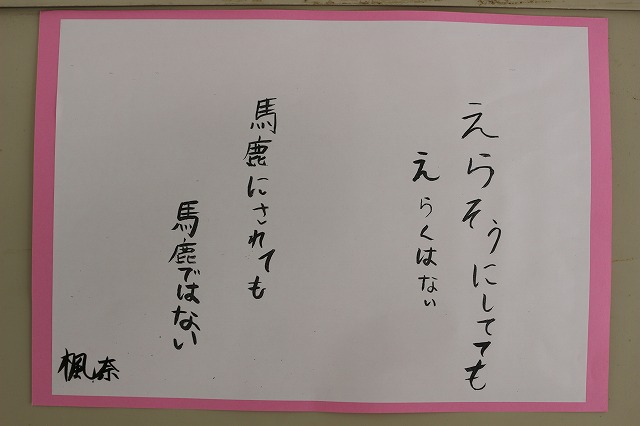 えらそうにしてても
えらくはない
馬鹿にされても
馬鹿ではない
楓奈